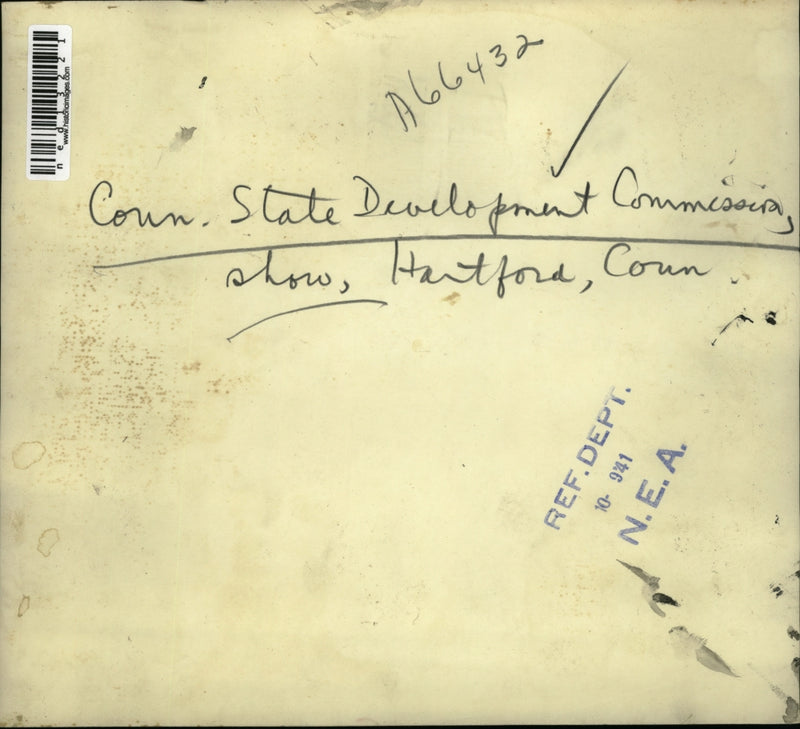 ned13221
www.historicimages.com
A66432
Conn. State Development Commission,
show, Hartford, Conn.
REF. DEPT.
10- 941
N.E.A.